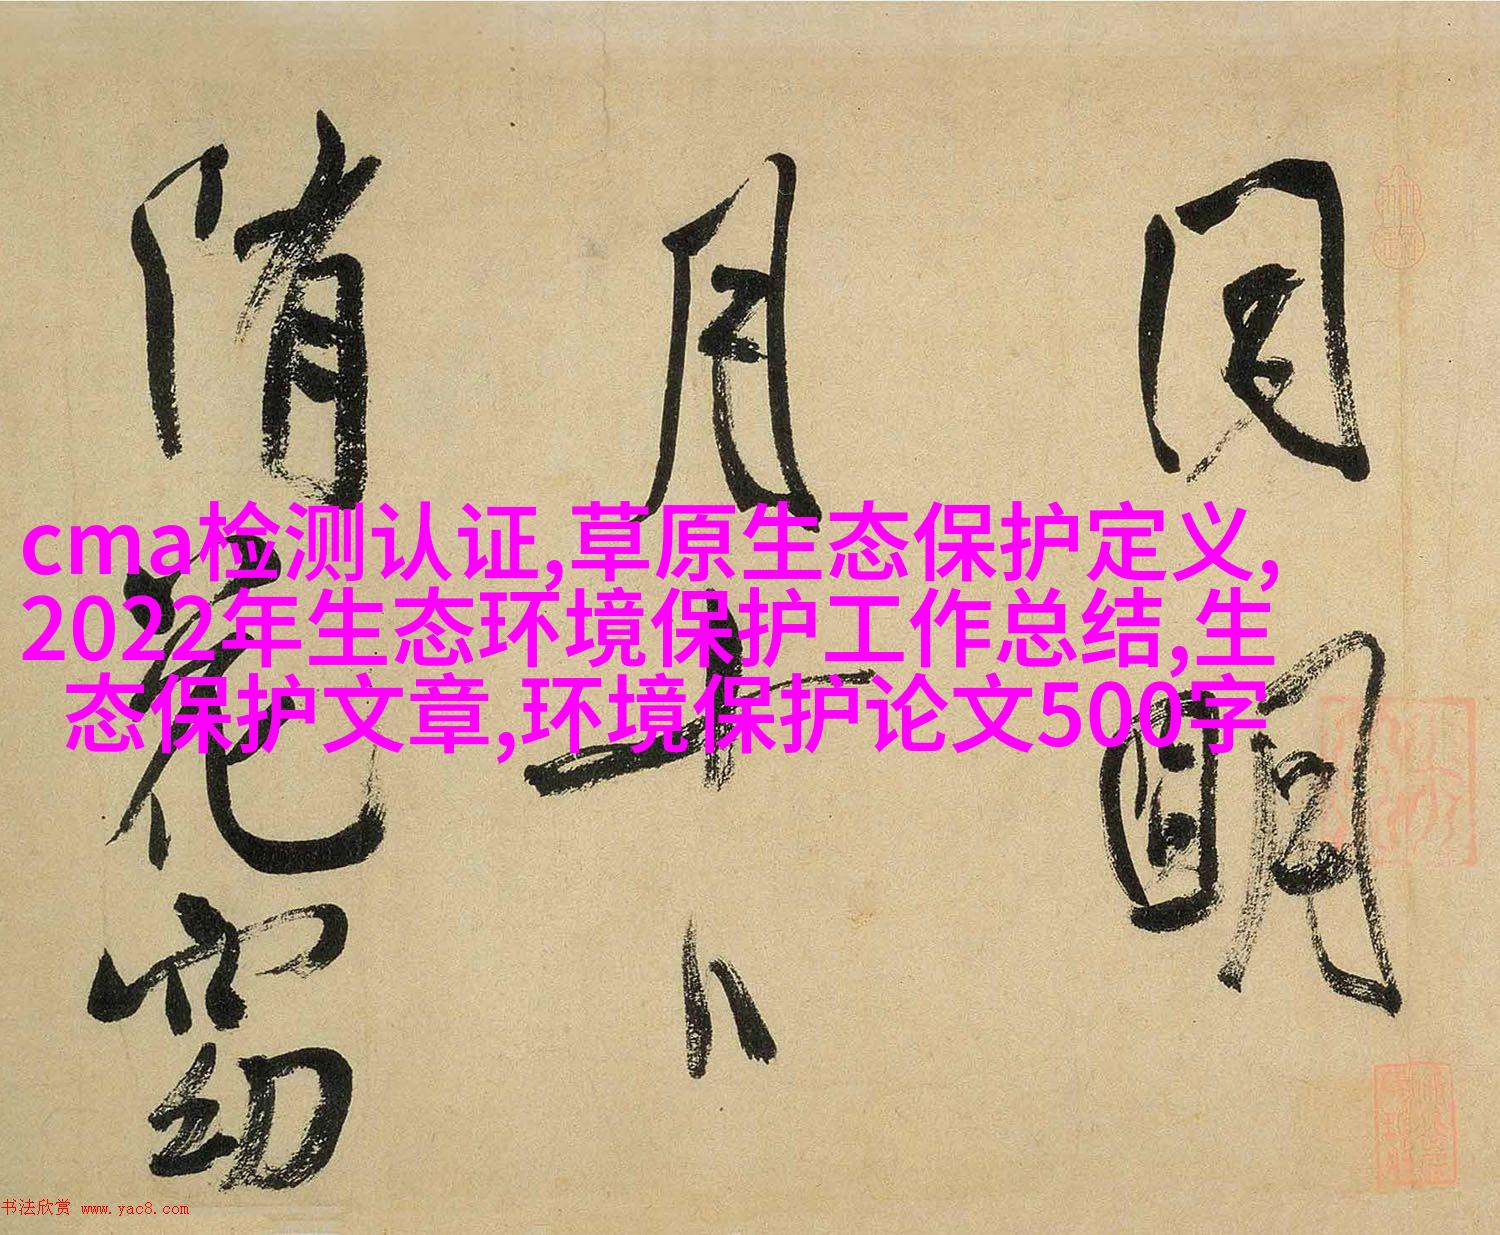 明
月十八
cma检测认证,草原生态保护定义,
2022年生态环境保护工作总结,生
态保护文章,环境保护论文500字
书法欣赏 www.yac8.com